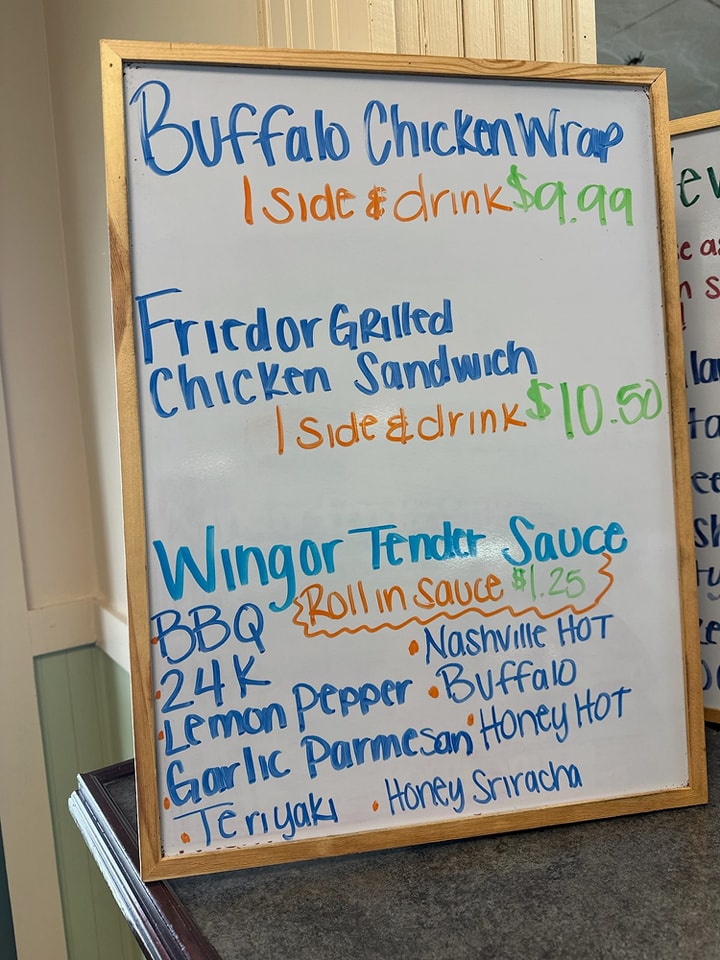 Buffalo Chicken Wrap
1 side & drink $9.99
Fried or Grilled
Chicken Sandwich
1 side & drink $10.50
Wing or Tender Sauce
Roll in sauce $1.25
• BBQ
• 24K
• Lemon Pepper
• Garlic Parmesan
• Teriyaki
• Nashville HOT
• Buffalo
• Honey HOT
• Honey Sriracha